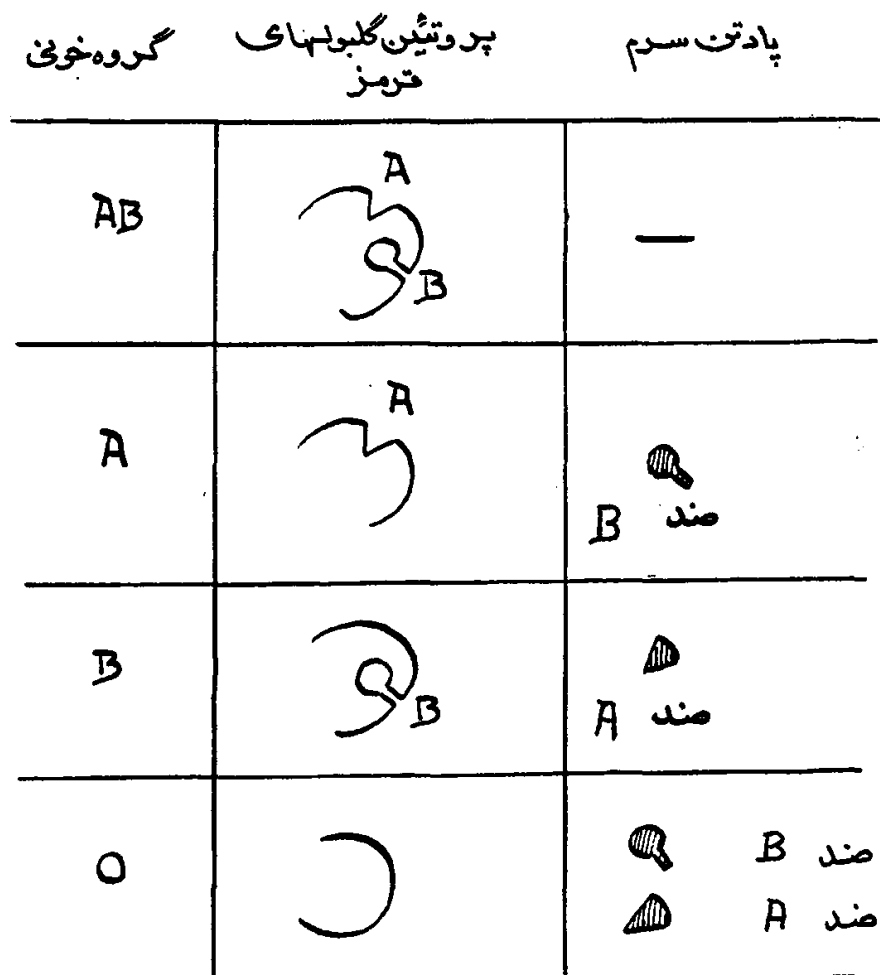 گروه خونی
پروتئین گلبولهای
قرمز
پادتن سرم
AB
A
B
—
A
A
ضد B
B
B
ضد A
O
ضد B
ضد A